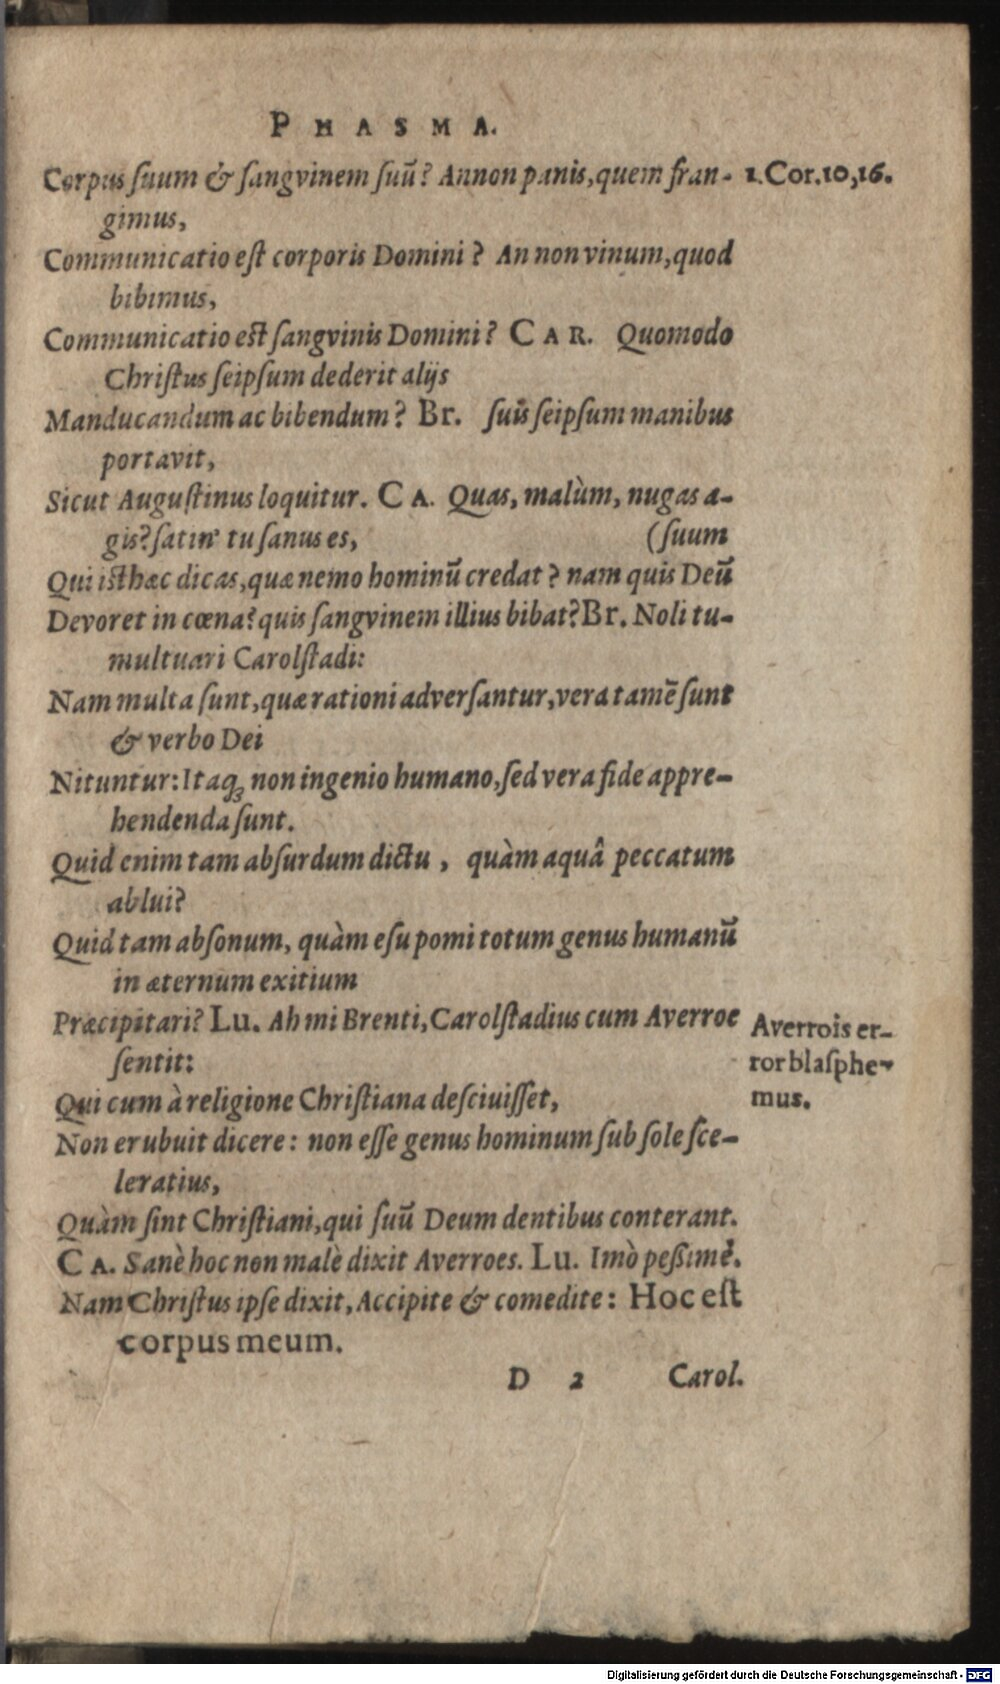 PHASMA.
Corpus ſuum & ſangvinem ſuū? Annon panis, quem fran- 1. Cor. 10, 16.
gimus,
Communicatio eſt corporis Domini? An non vinum, quod
bibimus,
Communicatio est ſangvinis Domini? CAR. Quomodo
Chriſtus ſeipſum dederit alijs
Manducandum ac bibendum? Br. ſuis ſeipſum manibus
portavit,
Sicut Auguſtinus loquitur. CA. Quas, malùm, nugas a-
gis? ſatin' tu ſanus es, (ſuum
Qui iſthæc dicas, quæ nemo hominū credat? nam quis Deū
Devoret in cœna? quis ſangvinem illius bibat? Br. Noli tu-
multuari Carolſtadi:
Nam multa ſunt, quæ rationi adverſantur, vera tamē ſunt
& verbo Dei
Nituntur: Itaqꝫ non ingenio humano, ſed vera fide appre-
hendenda ſunt.
Quid enim tam abſurdum dictu, quàm aquâ peccatum
ablui?
Quid tam abſonum, quàm eſu pomi totum genus humanū
in æternum exitium
Præcipitari? Lu. Ah mi Brenti, Carolſtadius cum Averroe
ſentit:
Averrois er-
ror blaſphe-
mus.
Qui cum à religione Chriſtiana deſciuiſſet,
Non erubuit dicere: non eſſe genus hominum ſub ſole ſce-
leratius,
Quàm ſint Chriſtiani, qui ſuū Deum dentibus conterant.
CA. Sanè hoc non malè dixit Averroes. Lu. Imò peſsimè.
Nam Chriſtus ipſe dixit, Accipite & comedite: Hoc eſt
corpus meum.
D 2 Carol.
Digitalisierung gefördert durch die Deutsche Forschungsgemeinschaft - DFG